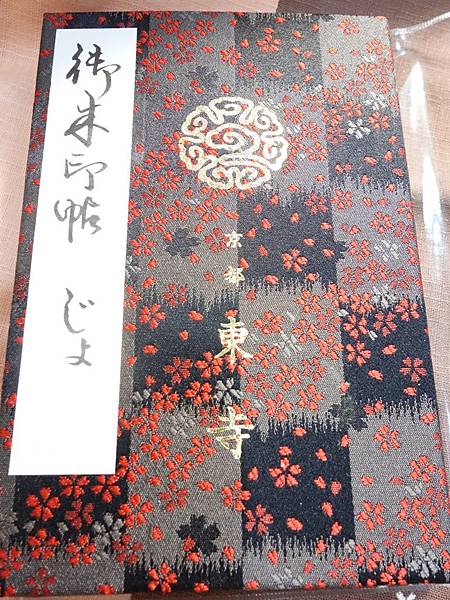 京都
東寺
御朱印帖 じょ